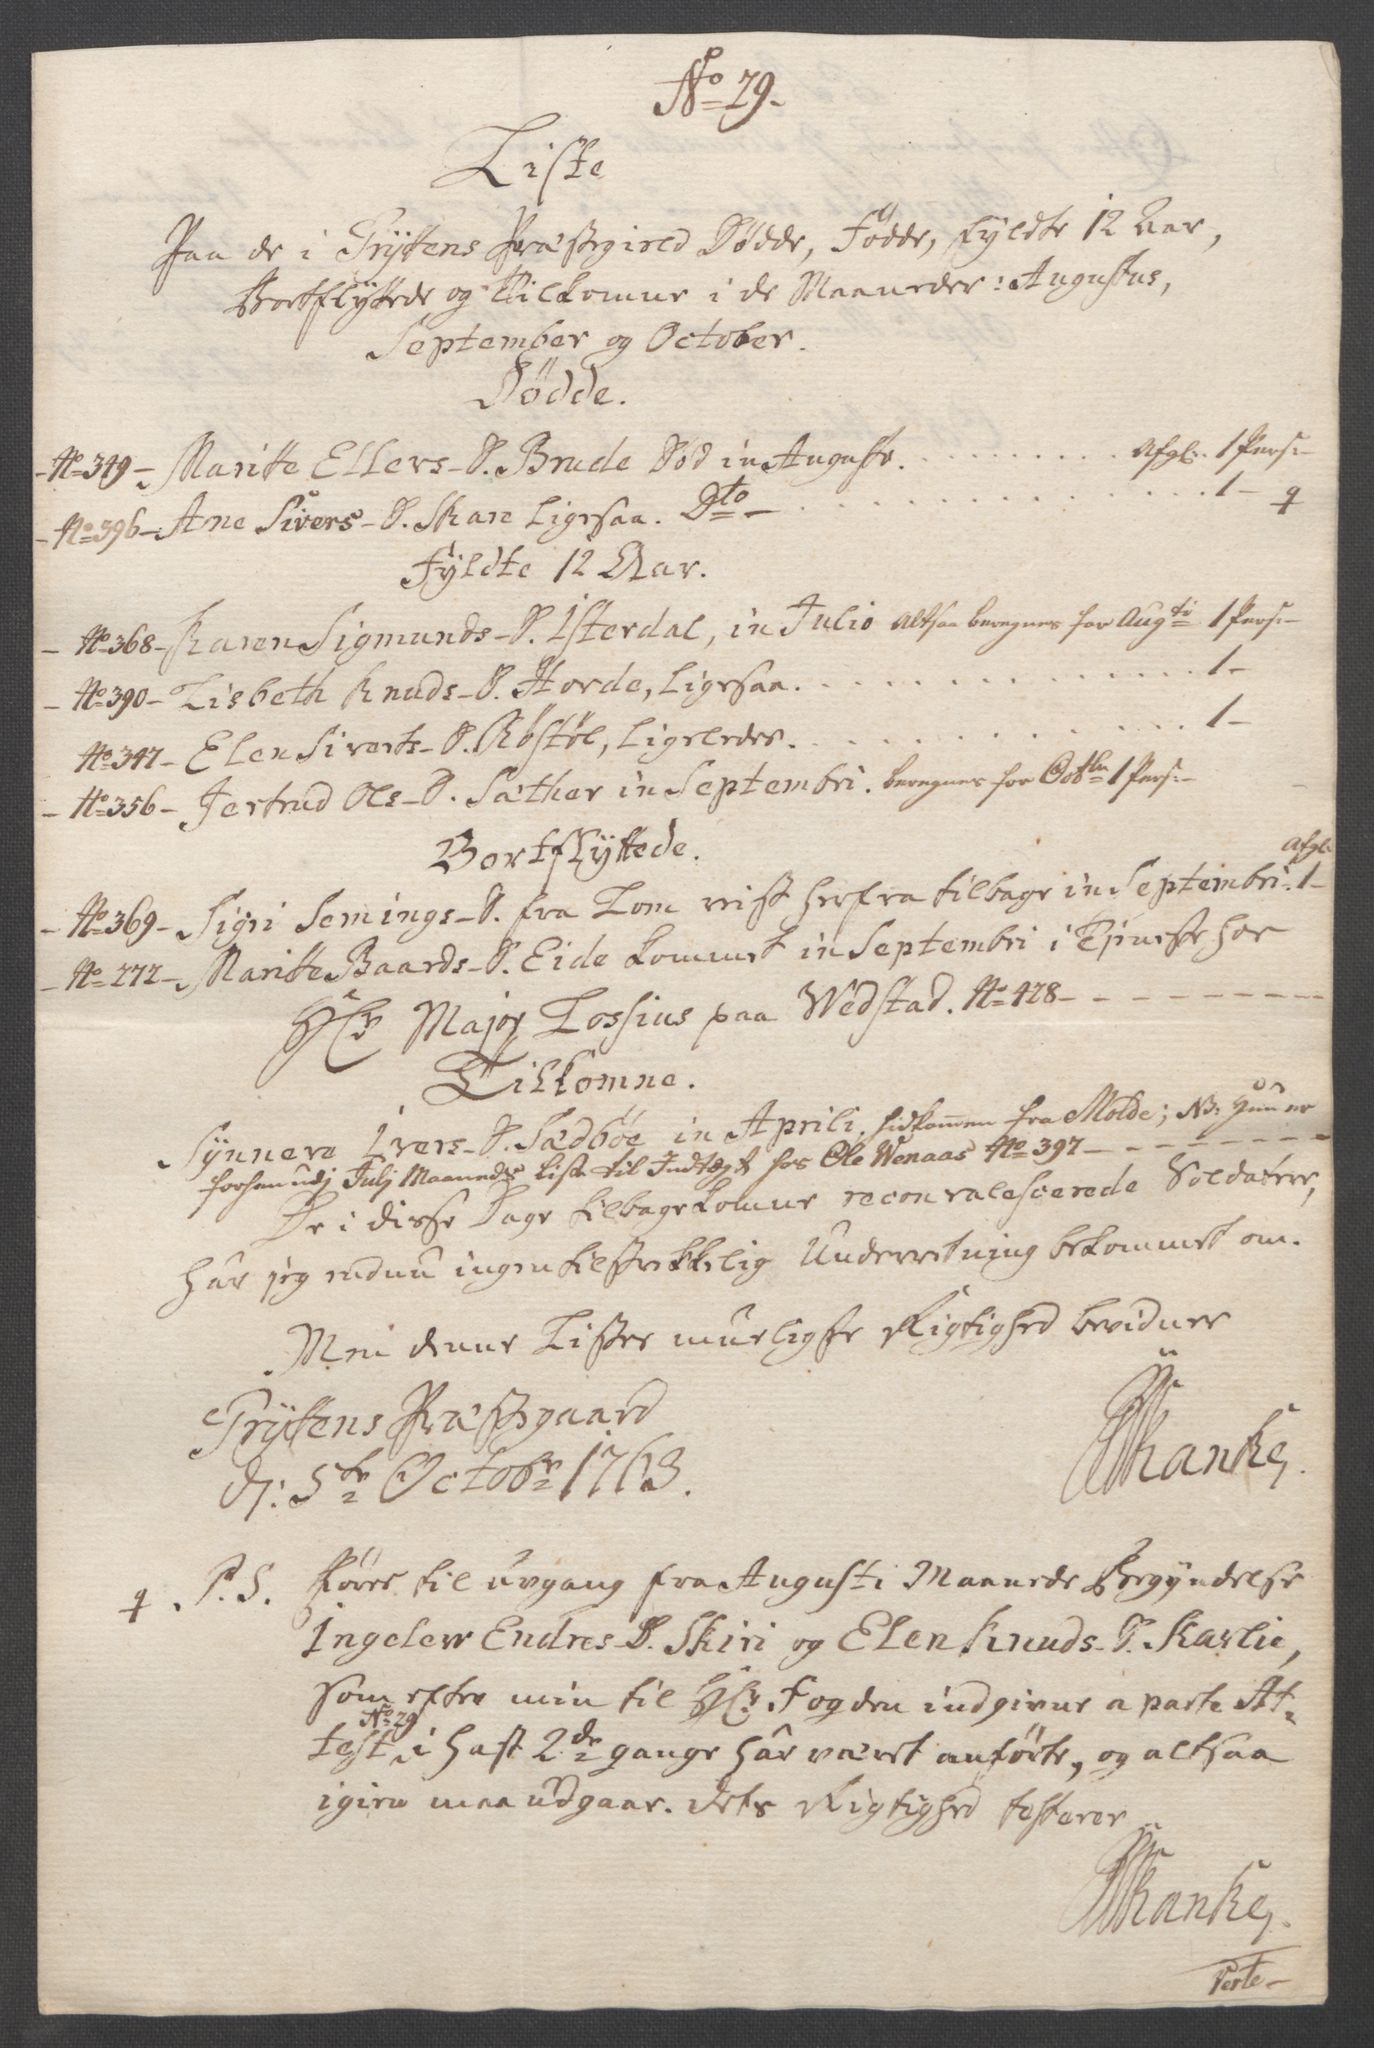 No 29.
Liste
Paa de i Gryttens Præstegield Dödde, Födde, fyldte 12 Aar,
Bortflyttede og Tilkomne i de Maaneder: Augustus,
September og October.
Dödde.
No 349 - Maritte Ellers-D. Brude Död in Augusto. Afgl. 1 Pers:
No 396 - Ane Sivers-D. Skare Ligesaa. Dto 1 -
Fyldte 12 Aar.
No 368 - Karen Sigmunds-D. Isterdal, in Julio altsaa beregnes for Augti 1 Pers:
No 390 - Lisbeth Knuds-D. Horde, Ligesaa. 1 -
No 347 - Elen Siverts-D. Röstöl, Ligeledes. 1 -
No 356 - Jertrud Ols-D. Sæther in Septembri. beregnes for Octbr 1 Pers:
Bortflyttede.
Afgl.
No 369 - Sigri Semings-D. fra Lom reist herfra tilbage in Septembri. 1 -
No 272 - Maritte Baards-D. Eide kommet in Septembri i Tieneste hos
Hr Major Lossius paa Wedstad. No 428 -
Tilkomne.
Synneve Ivers-D. Sædböe in Aprili. hidkommen fra Molde; NB: hun er
forhen udj Julj Maaneds Liste til Indtægt hos Ole Wenaas No 397 -
De i disse Dage tilbagekomne reconvalescerede Soldater,
har jeg endnu ingen tilstrekkelig Underretning bekommet om.
Min denne Listes mueligste Rigtighed bevidner
Gryttens Præstegaard
d: 5te Octobr 1763.
Hanke.
P.S. Föres til Avgang fra Augusti Maaneds Begyndelse
Ingelev Endres-D. Skiri og Elen Knuds-D. Skarlie,
som efter min til Hr Fogden indgivne a parte At-
No 29
test i hast 2de gange har været anförte, og altsaa
igien maa udgaae. dets Rigtighed testerer
Hanke.
Verte -